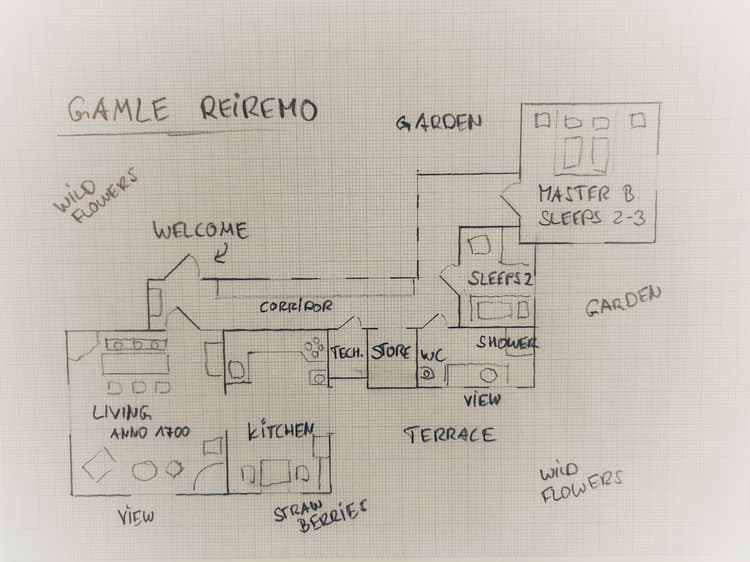 GAMLE REIREMO
GARDEN
WILD
FLOWERS
MASTER B
SLEEPS 2-3
WELCOME
SLEEPS 2
GARDEN
CORRIDOR
TECH.
STORE
WC
SHOWER
VIEW
LIVING
ANNO 1700
KITCHEN
TERRACE
WILD
FLOWERS
VIEW
STRAW
BERRIES